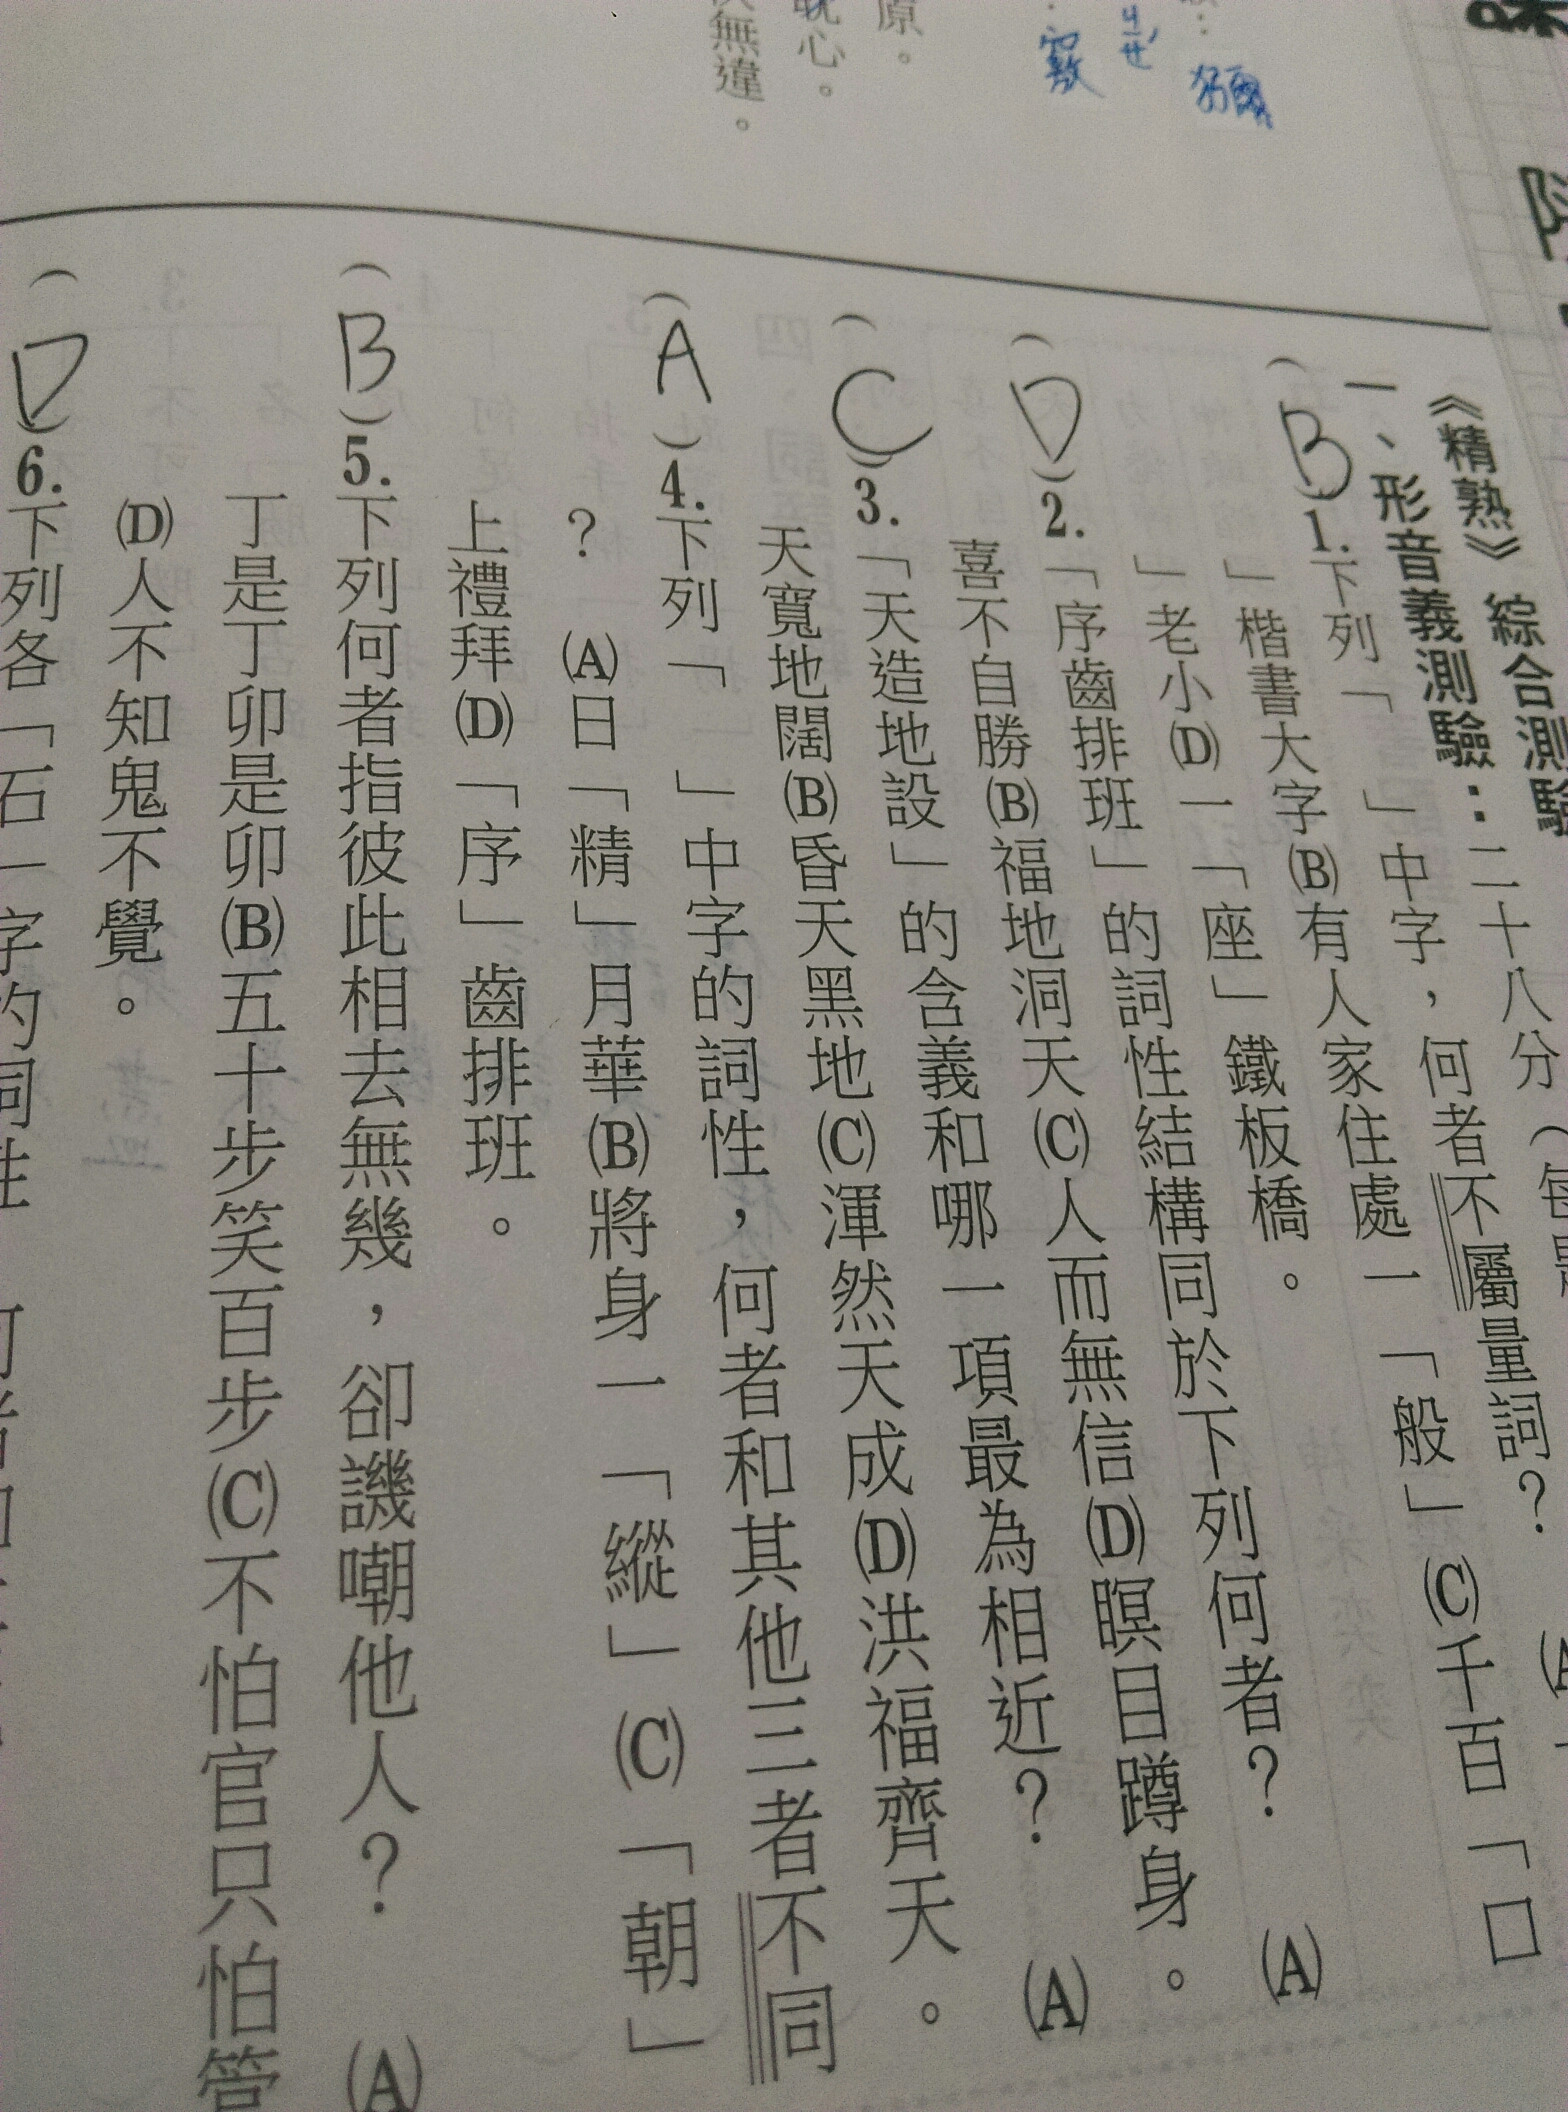 原。
耽心。
無違。
ㄐㄝˊ
竅
獼
《精熟》綜合測驗
一、形音義測驗：二十八分（每
(B)1.下列「　」中字，何者不屬量詞？
」楷書大字(B)有人家住處一「般」(C)千百「口
」老小(D)一「座」鐵板橋。
(D)2.「序齒排班」的詞性結構同於下列何者？　(A)
喜不自勝(B)福地洞天(C)人而無信(D)瞑目蹲身。
(C)3.「天造地設」的含義和哪一項最為相近？　(A)
天寬地闊(B)昏天黑地(C)渾然天成(D)洪福齊天。
(A)4.下列「　」中字的詞性，何者和其他三者不同
？　(A)日「精」月華(B)將身一「縱」(C)「朝」
上禮拜(D)「序」齒排班。
(B)5.下列何者指彼此相去無幾，卻譏嘲他人？　(A)
丁是丁卯是卯(B)五十步笑百步(C)不怕官只怕管
(D)人不知鬼不覺。
(D)6.下列各「石」字的詞性